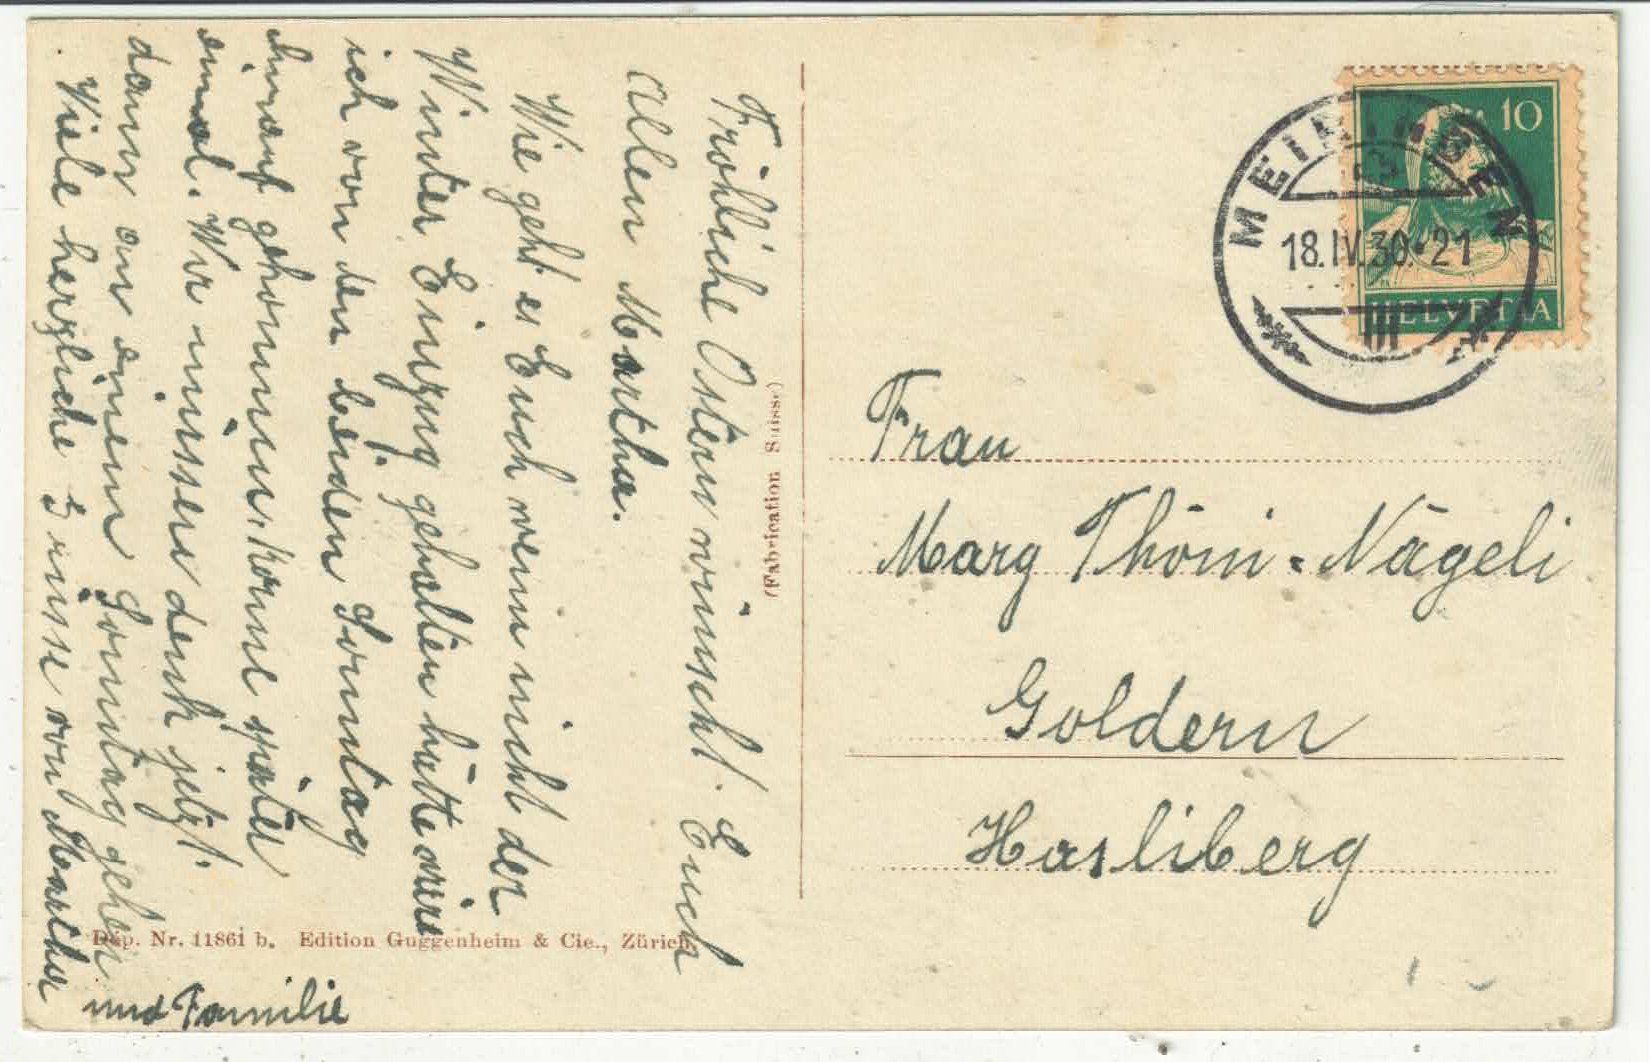 Fröhliche Ostern wünscht Euch
Allen Martha.
Wie geht es Euch wenn nicht der
Winter Einzug gehalten hätte wäre
ich von den beiden Sonntag
hinauf gekommen. Komme später
einmal. Wir müssen denk jetzt.
dann an einem Sonntag gehen
Viele herzliche Grüsse von Martha
und Familie
(Fabrication Suisse)
Dép. Nr. 11861 b. Edition Guggenheim & Cie., Zürich.
10
HELVETIA
MEIRINGEN
18.IV.30.21
III
Frau
Marg Thöni-Nägeli
Goldern
Hasliberg